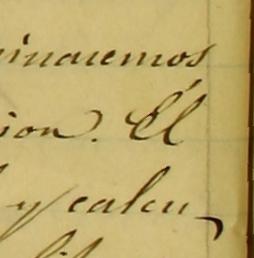 inaremos
ion. El
y calcu